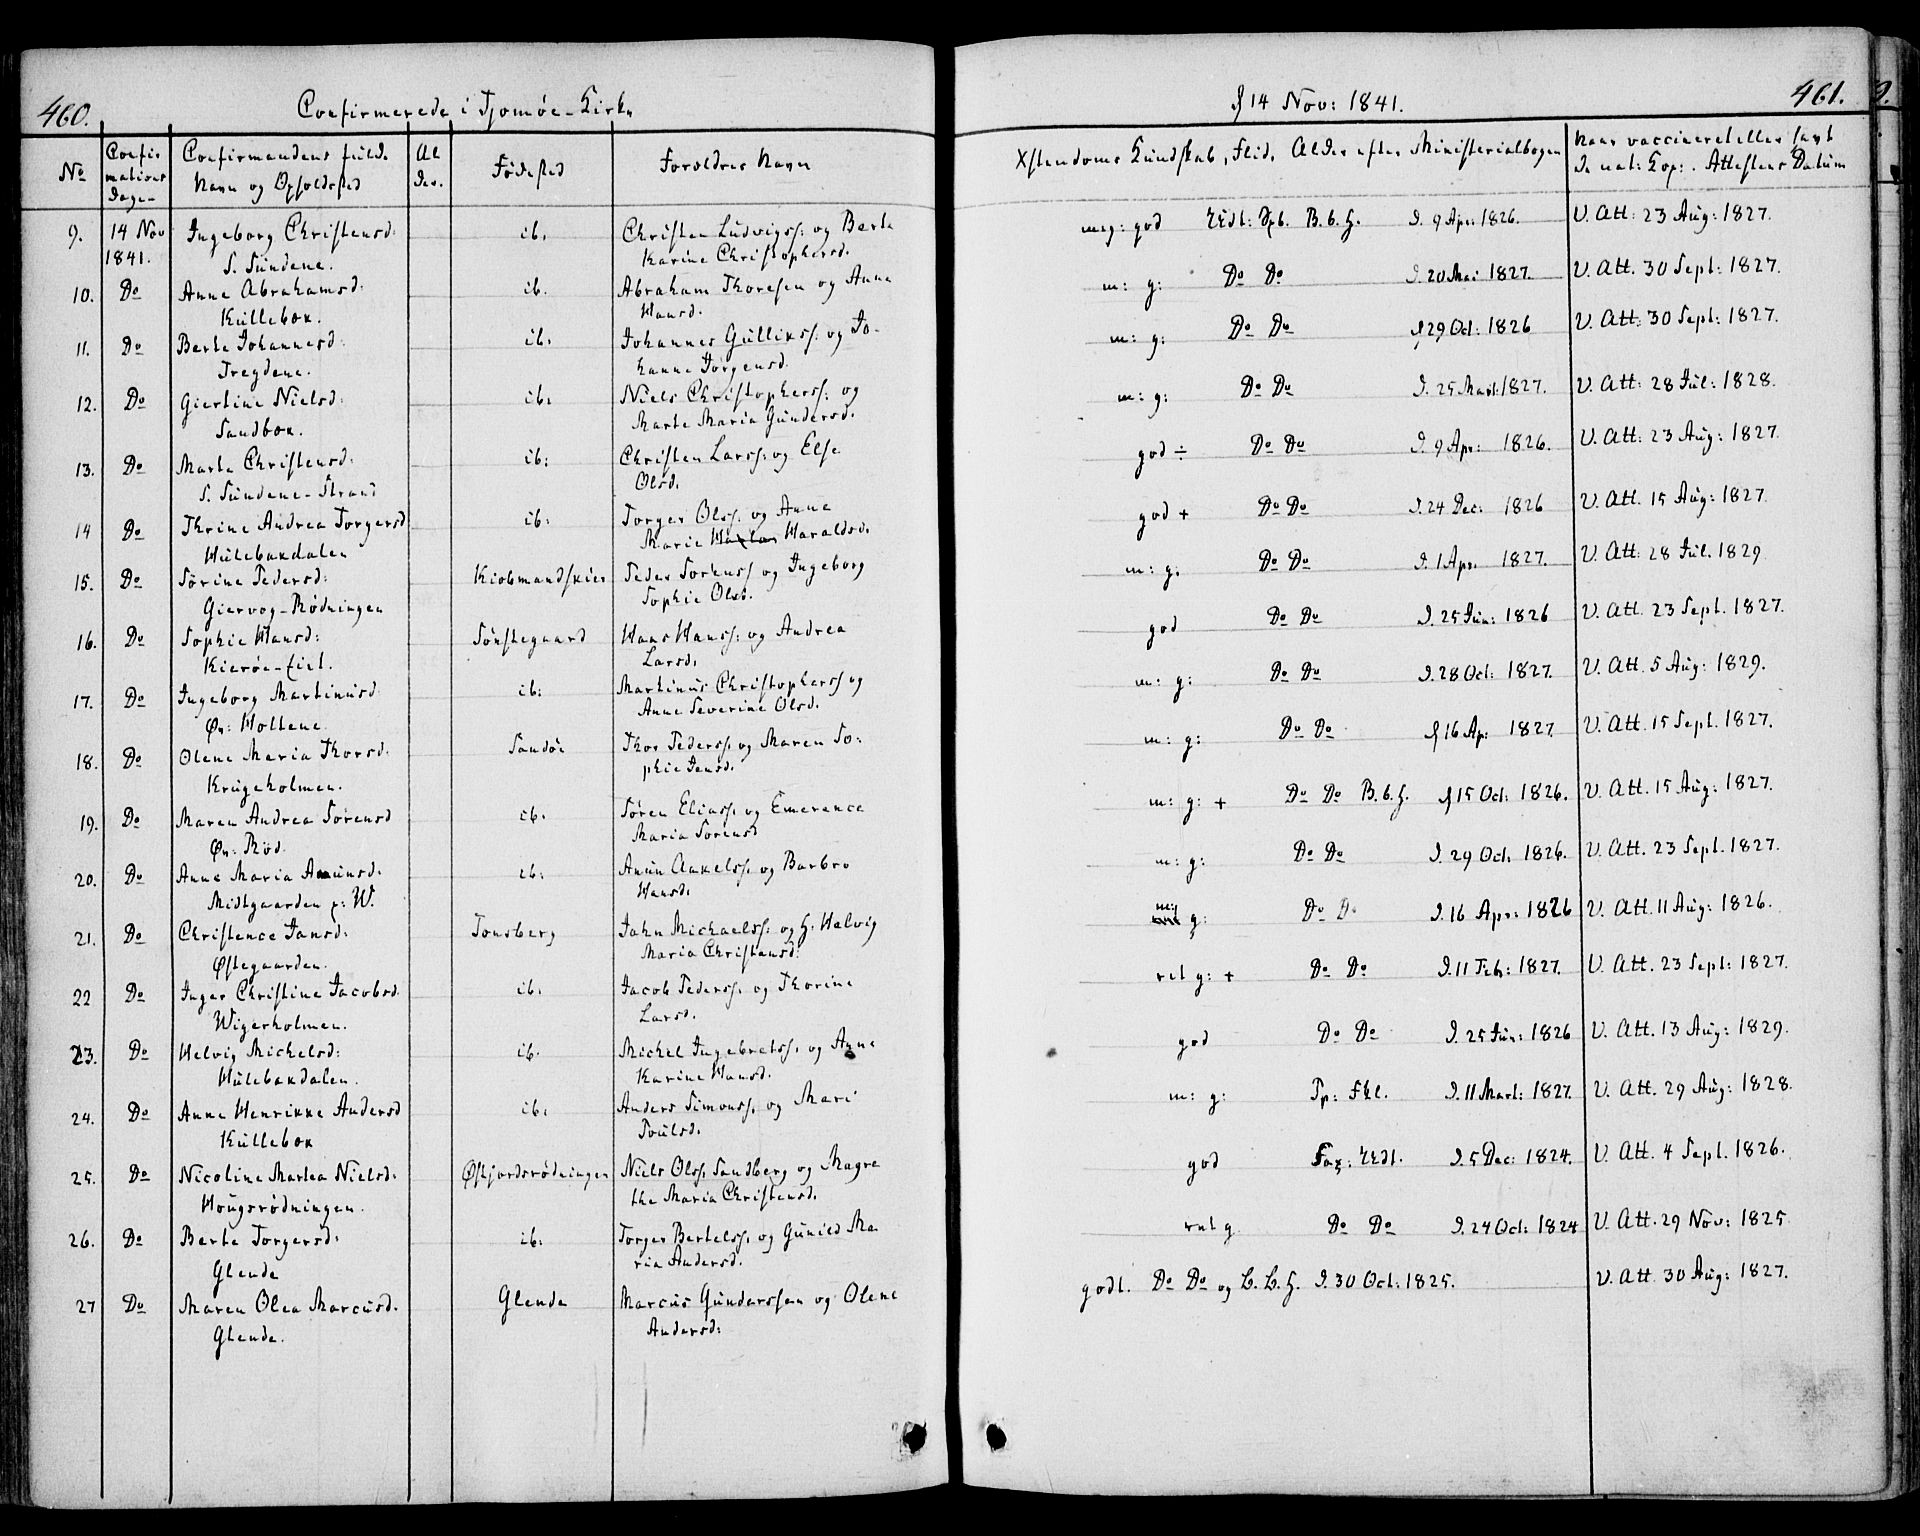 460.
Confirmerede i Tjømøe-Kirke
No
Confir
mations
Dagen
Confirmandens fulde
Navn og Opholdsted
Al
der.
Fødested
Foroldres Navn
9. 14 Nov 1841. Ingeborg Christensd: ib. Christen Ludvigss: og Berte
S. Sundene. Karine Christophersd.
10. Do Anne Abrahamsd: ib. Abraham Thoresen og Anne
Kullebox. Hansd.
11. Do Berte Johannesd: ib. Johannes Gullixs: og Jo-
Tregdene. hanne Jørgensd.
12. Do Giertine Nielsd: ib. Niels Christopherss: og
Sandbox. Marte Maria Gundersd.
13. Do Marte Christensd: ib: Christen Larss: og Else
S. Sundene-Strand Olsd.
14 Do Thrine Andrea Torgersd ib: Torger Olss. og Anne
Hulebaxdalen Marie Haraldsd.
15. Do Sørine Pedersd: Kiøbmandskiær Peder Sørenss og Ingeborg
Giervog-Rødningen Sophie Olsd.
16. Do Sophie Hansd: Sønstegaard Hans Hanss: og Andrea
Kierøe-Eiet. Larsd.
17. Do Ingeborg Martinusd: ib: Martinus Christopherss og
Øv: Holtene. Anne Severine Olsd.
18. Do Olene Maria Thorsd: Sandøe Thor Pederss. og Maren So:
Krugeholmen. phie Jensd.
19. Do Maren Andrea Sørensd ib. Søren Eliass. og Emerence
Øv: Rød. Maria Sørensd
20. Do Anne Maria Anunsd. ib: Anun Aaxelss. og Barbro
Midtgaarden p: W. Hansd.
21. Do Christence Jansd: Tønsberg Jahn Michaelss: og H. Helvig
Østegaarden. Maria Christensd:
22 Do Inger Christine Jacobsd. ib. Jacob Pederss. og Thorine
Wigerholmen. Larsd.
23. Do Helvig Mickelsd: ib. Mickel Ingebretss. og Anne
Hulebaxdalen. Karine Hansd.
24. Do Anne Henrikke Andersd ib. Anders Simonss. og Mari
Kullebox Poulsd.
25. Do Nicoline Martea Nielsd: Østjordsrødningen Niels Olss. Sandberg og Magre
Hougsrødningen. the Maria Christensd.
26. Do Berte Torgersd: ib: Torger Bertelss. og Gunild Ma
Glende ria Andersd.
27 Do Maren Olea Marcusd. Glende Marcus Gunderssen og Olene
Glende. Andersd:
d 14 Nov: 1841.
461.
Xstendoms Kundskab, Flid, Alder efter Ministerialbogen
Naar vaccineret eller havt
de nat: Kop:. Attestens Datum
meg: god B. b. H. D. 9 Apr: 1826. V. Att: 23 Aug: 1827.
m: g: Do Do D. 20 Mai 1827. V. Att. 30 Sept: 1827.
m: g: Do Do d 29 Oct: 1826 V. Att: 30 Sept: 1827.
m: g: Do Do D. 25 Mart: 1827. V. Att: 28 Jul: 1828.
god ÷ Do Do D. 9 Apr: 1826. V. Att: 23 Aug: 1827.
god + Do Do D. 24 Dec: 1826 V. Att. 15 Aug: 1827.
m: g: Do Do D. 1 Apr. 1827. V. Att: 28 Jul. 1829
god Do Do D. 25 Jun: 1826 V. Att. 23 Sept. 1827.
m: g: Do Do D. 28 Oct: 1827. V. Att. 5 Aug: 1829.
m: g: Do Do d 16 Ap: 1827. V. Att. 15 Sept. 1827.
m: g: + Do Do B. b. H. d 15 Oct: 1826. V. Att. 15 Aug: 1827.
m: g: Do Do D. 29 Oct. 1826. V. Att. 23 Sept. 1827.
m: g: Do Do D. 16 Apr: 1826 V. Att. 11 Aug: 1826.
ret g: + Do Do D. 11 Feb: 1827. V. Att. 23 Sept: 1827.
god Do Do D. 25 Jun: 1826 V. Att. 13 Aug: 1829.
m: g: D. 11 Mart: 1827. V. Att. 29 Aug: 1828.
god D. 5 Dec: 1824. V. Att. 4 Sept. 1826.
ret g. Do Do D. 24 Oct: 1824 V. Att. 29 Nov: 1825.
godt. Do Do og B. b. H. D. 30 Oct: 1825. V. Att. 30 Aug: 1827.